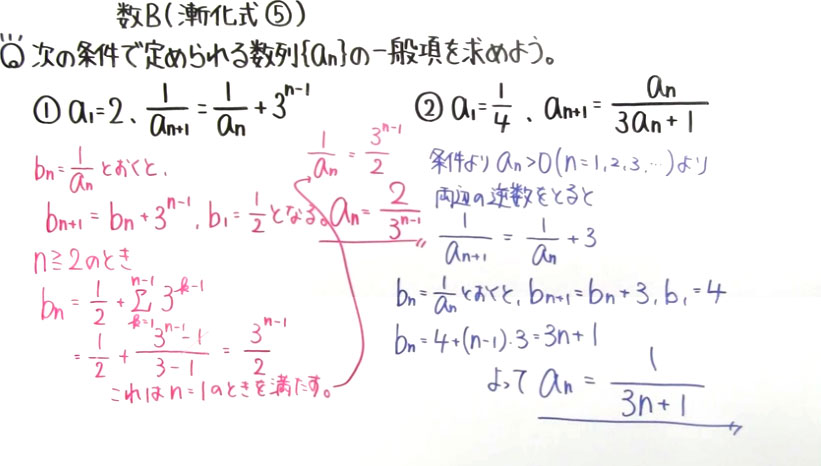 数B(漸化式⑤)
Q 次の条件で定められる数列{an}の一般項を求めよう。
① a₁=2、1/aₙ₊₁ = 1/aₙ + 3ⁿ⁻¹
bₙ=1/aₙとおくと、
bₙ₊₁=bₙ+3ⁿ⁻¹, b₁=1/2となる。
n≧2のとき
bₙ = 1/2 + Σ[k=1, n-1] 3ᵏ⁻¹
= 1/2 + (3ⁿ⁻¹-1)/(3-1) = 3ⁿ⁻¹/2
これはn=1のときを満たす。
1/aₙ = 3ⁿ⁻¹/2
aₙ = 2/3ⁿ⁻¹
② a₁=1/4、aₙ₊₁ = aₙ/(3aₙ+1)
条件より aₙ>0(n=1,2,3,…)より
両辺の逆数をとると
1/aₙ₊₁ = 1/aₙ + 3
bₙ=1/aₙとおくと, bₙ₊₁=bₙ+3, b₁=4
bₙ=4+(n-1)・3=3n+1
よって aₙ = 1/(3n+1)